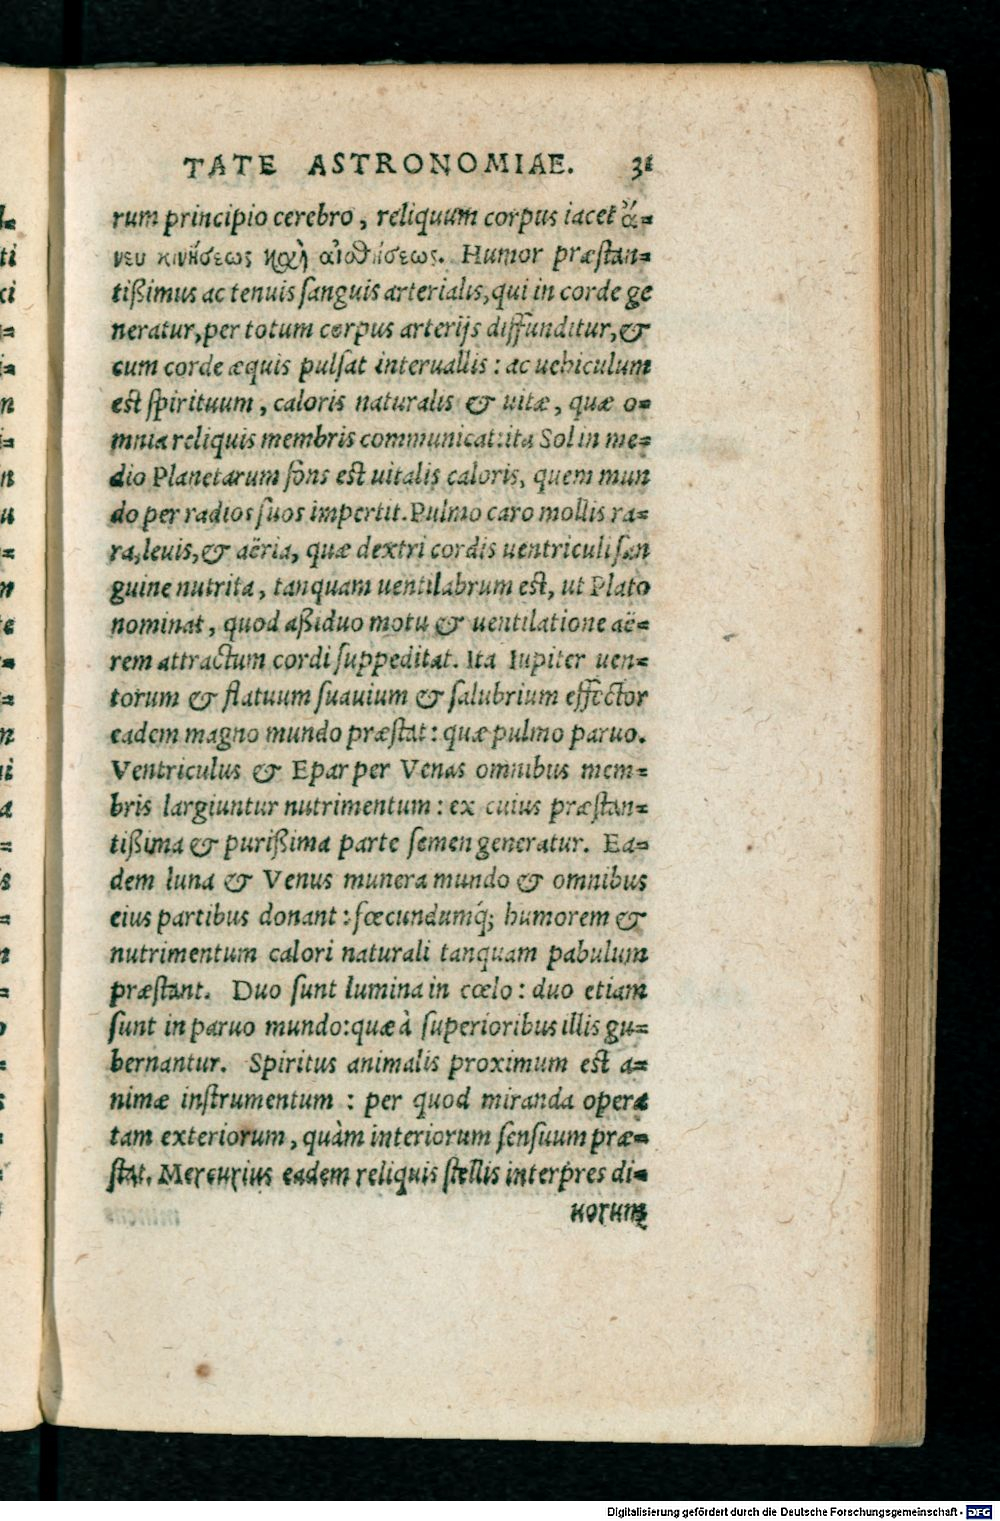 TATE ASTRONOMIAE. 31
rum principio cerebro, reliquum corpus iacet ἄ=
νευ κινήσεως καὶ αἰσθήσεως. Humor præstan=
tißimus ac tenuis sanguis arterialis, qui in corde ge
neratur, per totum corpus arterijs diffunditur, &
cum corde æquis pulsat interuallis: ac uehiculum
est spirituum, caloris naturalis & uitæ, quæ o=
mnia reliquis membris communicat: ita Sol in me=
dio Planetarum fons est uitalis caloris, quem mun
do per radios suos impertit. Pulmo caro mollis ra=
ra, leuis, & aëria, quæ dextri cordis uentriculi san
guine nutrita, tanquam uentilabrum est, ut Plato
nominat, quod aßiduo motu & uentilatione aë=
rem attractum cordi suppeditat. Ita Iupiter uen=
torum & flatuum suauium & salubrium effector
eadem magno mundo præstat: quæ pulmo paruo.
Ventriculus & Epar per Venas omnibus mem=
bris largiuntur nutrimentum: ex cuius præstan=
tißima & purißima parte semen generatur. Ea=
dem luna & Venus munera mundo & omnibus
eius partibus donant: fœcundumq́; humorem &
nutrimentum calori naturali tanquam pabulum
præstant. Duo sunt lumina in cœlo: duo etiam
sunt in paruo mundo: quæ à superioribus illis gu=
bernantur. Spiritus animalis proximum est a=
nimæ instrumentum : per quod miranda opera
tam exteriorum, quàm interiorum sensuum præ=
stat. Mercurius eadem reliquis stellis interpres di=
uorum
Digitalisierung gefördert durch die Deutsche Forschungsgemeinschaft - DFG